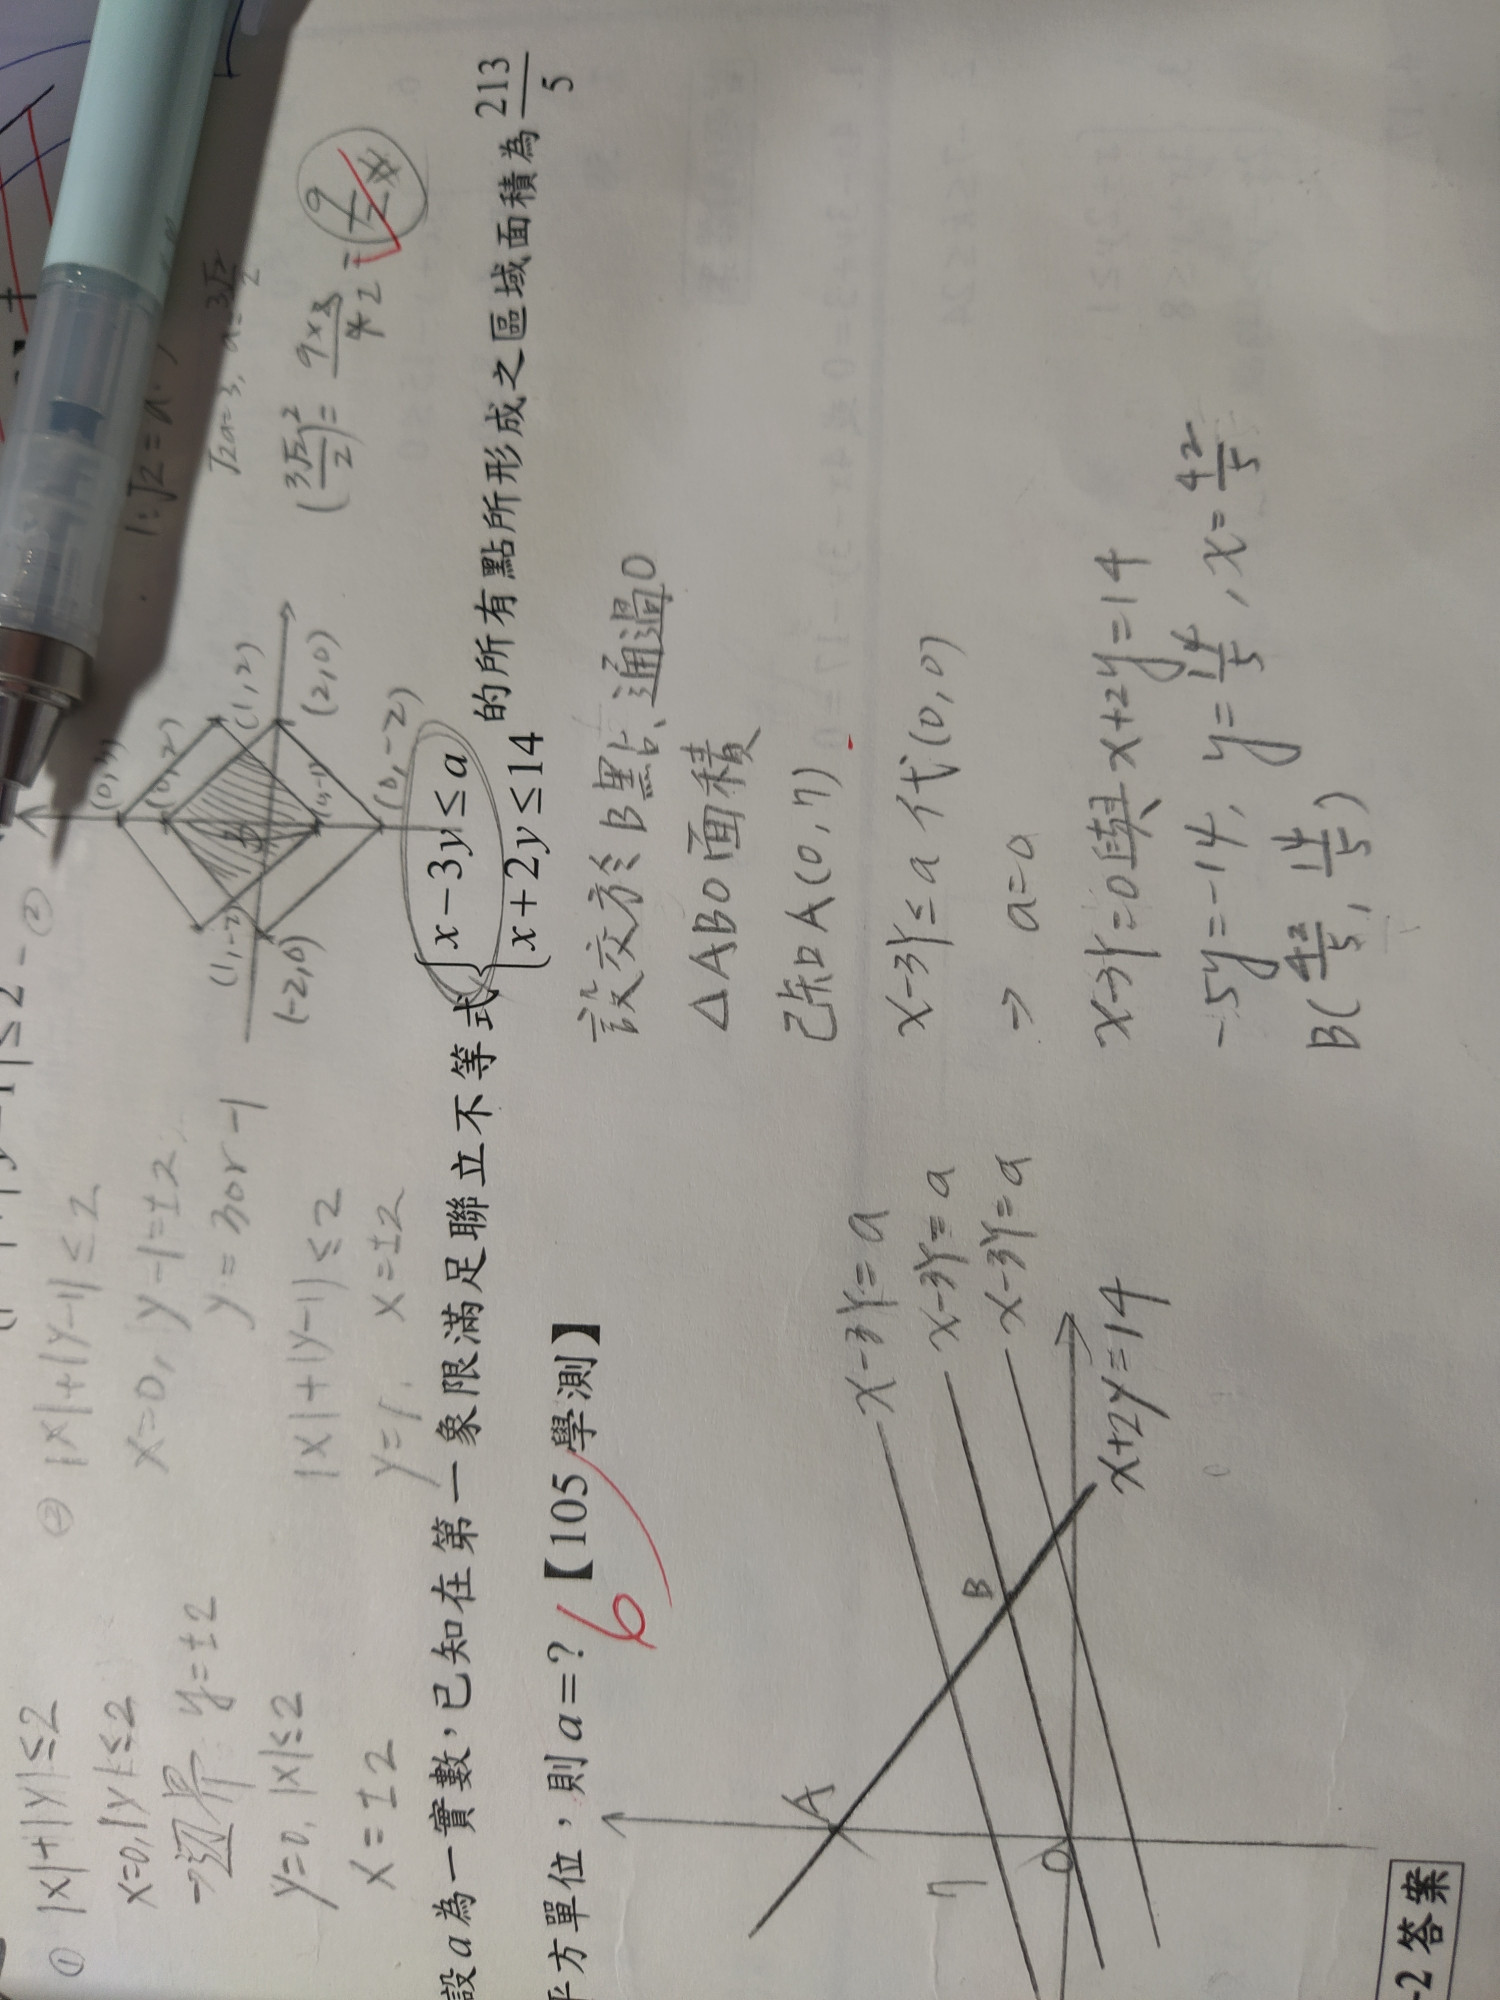 ① |x|+|y|≤2
x=0,|y|≤2
→边界 y=±2
y=0, |x|≤2
x=±2
② |x|+|y-1|≤2
x=0, |y-1=±2
y=3or-1
|x|+|y-1|≤2
y=1, x=±2
(0,3)
(1,2)
(2,0)
(-2,0)
(0,-2)
√2a=3, a=3√2/2
(3√2/2)²=9×2/4=9/2
設a為一實數,已知在第一象限滿足聯立不等式{x-3y≤a
x+2y≤14 的所有點所形成之區域面積為213/5
平方單位,則a=?【105學測】
6
設交於B點、通過O
△ABO面積
已知A(0,7)
x-3y≤a 代(0,0)
→ a=0
x-3y=0與x+2y=14
-5y=-14, y=14/5, x=42/5
B(42/5, 14/5)
A
B
7
O
x-3y=a
x-3y=a
x-3y=a
x+2y=14
-2答案